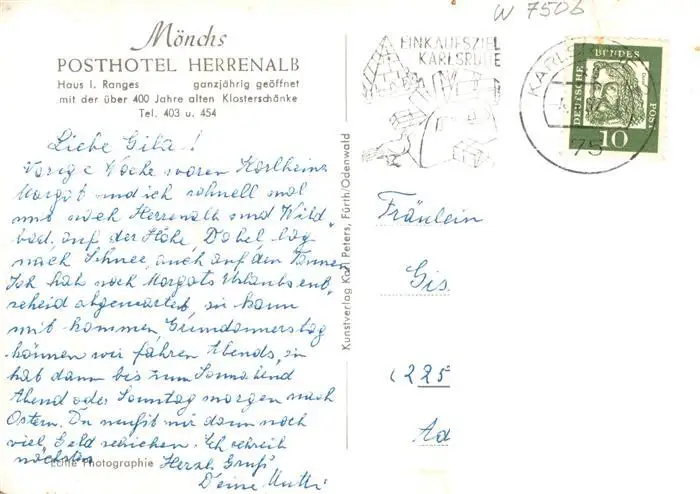 W 7506
Mönchs
POSTHOTEL HERRENALB
Haus I. Ranges ganzjährig geöffnet
mit der über 400 Jahre alten Klosterschänke
Tel. 403 u. 454
EINKAUFSZIEL
KARLSRUHE
KARLSRUHE
75
DEUTSCHE BUNDES POST
10
Liebe Gila!
Vorige Woche waren Karlheinz
Margot und ich schnell mal
nach Herrenalb und Wild-
bad, auf der Höhe, Dobel, lag
noch Schnee, auch auf den Tannen
Ich hab noch Margots Urlaubsent-
scheid abgewartet, sie kann
mit kommen, Gründonnerstag
können wir fahren Abends, sie
hat dann bis zum Sonnabend
Abend oder Sonntag morgen nach
Ostern. Du mußt mir dann noch
viel Geld schicken. Ich schreib
nächstens Herzl. Gruß
Deine Mutti
Echte Photographie
Kunstverlag Karl Peters, Fürth/Odenwald
Fräulein
Gis
225
Ad